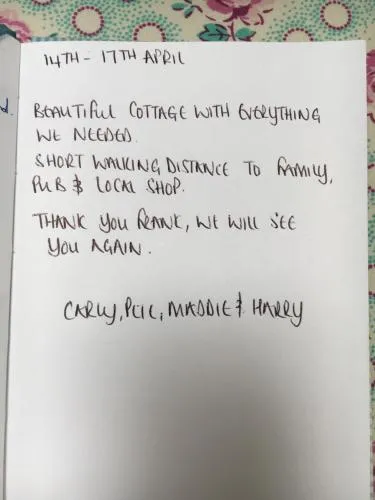 14TH - 17TH APRIL
BEAUTIFUL COTTAGE WITH EVERYTHING
WE NEEDED.
SHORT WALKING DISTANCE TO FAMILY,
PUB & LOCAL SHOP.
THANK YOU FRANK, WE WILL SEE
YOU AGAIN.
CARLY, MADDIE & HARRY